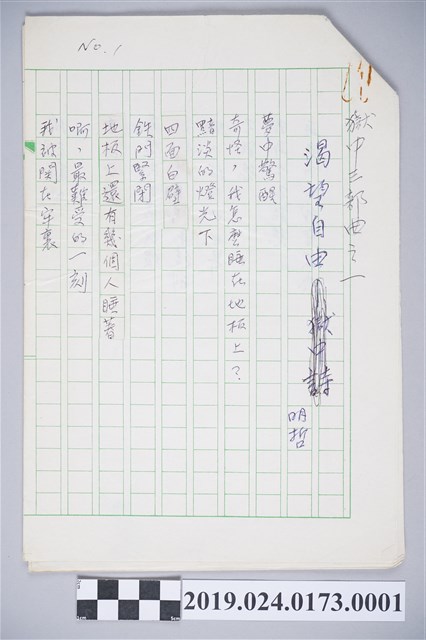 No. 1
獄中三部曲之一
渴望自由 獄中詩
明哲
夢中驚醒
奇怪,我怎麼睡在地板上?
黯淡的燈光下
四面白壁
鉄門堅閉
地板上還有幾個人睡著
啊,最難受的一刻
我被関在牢裏
2019.024.0173.0001